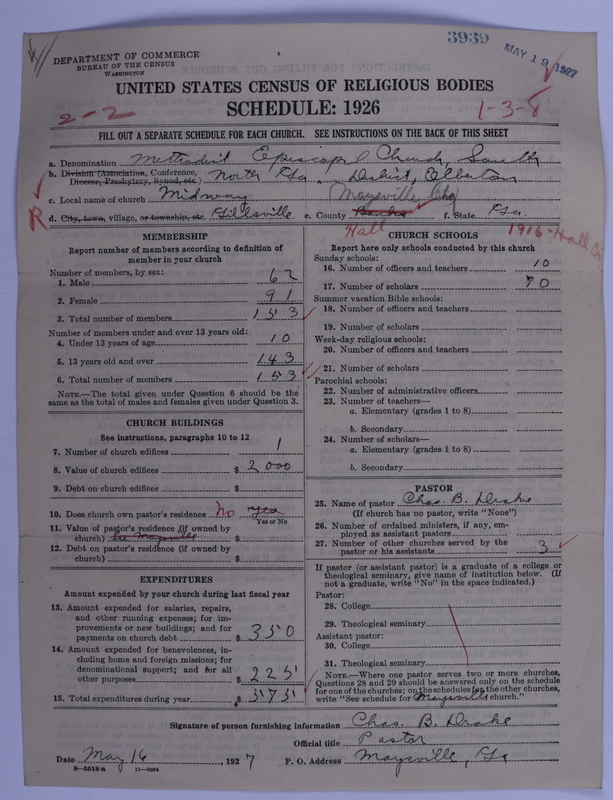 3939
MAY 19 1927
DEPARTMENT OF COMMERCE
BUREAU OF THE CENSUS
WASHINGTON
UNITED STATES CENSUS OF RELIGIOUS BODIES
SCHEDULE: 1926
2-2
1-3-8
FILL OUT A SEPARATE SCHEDULE FOR EACH CHURCH. SEE INSTRUCTIONS ON THE BACK OF THIS SHEET
a. Denomination Methodist Episcopal Church, South
b. Division (Association, Conference, Diocese, Presbytery, Synod, etc.) North Ga., District, Elberton
c. Local name of church Midway (Maysville Chg)
R d. City, town, village, or township, etc. Gillsville e. County Banks f. State Ga.
Hall
1916-Hall Co.
MEMBERSHIP
Report number of members according to definition of
member in your church
Number of members, by sex:
1. Male 62
2. Female 91
3. Total number of members 153
Number of members under and over 13 years old:
4. Under 13 years of age 10
5. 13 years old and over 143
6. Total number of members 153
NOTE.—The total given under Question 6 should be
same as the total of males and females given under Question 3.
CHURCH BUILDINGS
See instructions, paragraphs 10 to 12
7. Number of church edifices 1
8. Value of church edifices $ 2000
9. Debt on church edifices $
10. Does church own pastor's residence? No yes
Yes or No
11. Value of pastor's residence (if owned by
church) See Maysville $
12. Debt on pastor's residence (if owned by
church) $
EXPENDITURES
Amount expended by your church during last fiscal year
13. Amount expended for salaries, repairs,
and other running expenses; for im-
provements or new buildings; and for
payments on church debt $ 350
14. Amount expended for benevolences, in-
cluding home and foreign missions; for
denominational support; and for all
other purposes $ 225
15. Total expenditures during year $ 575
CHURCH SCHOOLS
Report here only schools conducted by this church
Sunday schools:
16. Number of officers and teachers 10
17. Number of scholars 70
Summer vacation Bible schools:
18. Number of officers and teachers
19. Number of scholars
Week-day religious schools:
20. Number of officers and teachers
21. Number of scholars
Parochial schools:
22. Number of administrative officers
23. Number of teachers—
a. Elementary (grades 1 to 8)
b. Secondary
24. Number of scholars—
a. Elementary (grades 1 to 8)
b. Secondary
PASTOR
25. Name of pastor Chas. B. Drake
(If church has no pastor, write "None")
26. Number of ordained ministers, if any, em-
ployed as assistant pastors
27. Number of other churches served by the
pastor or his assistants 3
If pastor (or assistant pastor) is a graduate of a college or
theological seminary, give name of institution below. (If
not a graduate, write "No" in the space indicated.)
Pastor:
28. College
29. Theological seminary
Assistant pastor:
30. College
31. Theological seminary
NOTE.—Where one pastor serves two or more churches,
Questions 28 and 29 should be answered only on the schedule
for one of the churches; on the schedules for the other churches,
write "See schedule for Maysville church."
Signature of person furnishing information Chas. B. Drake
Official title Pastor
Date May 16, 1927 P. O. Address Maysville, Ga
8-5518 a 11-9054